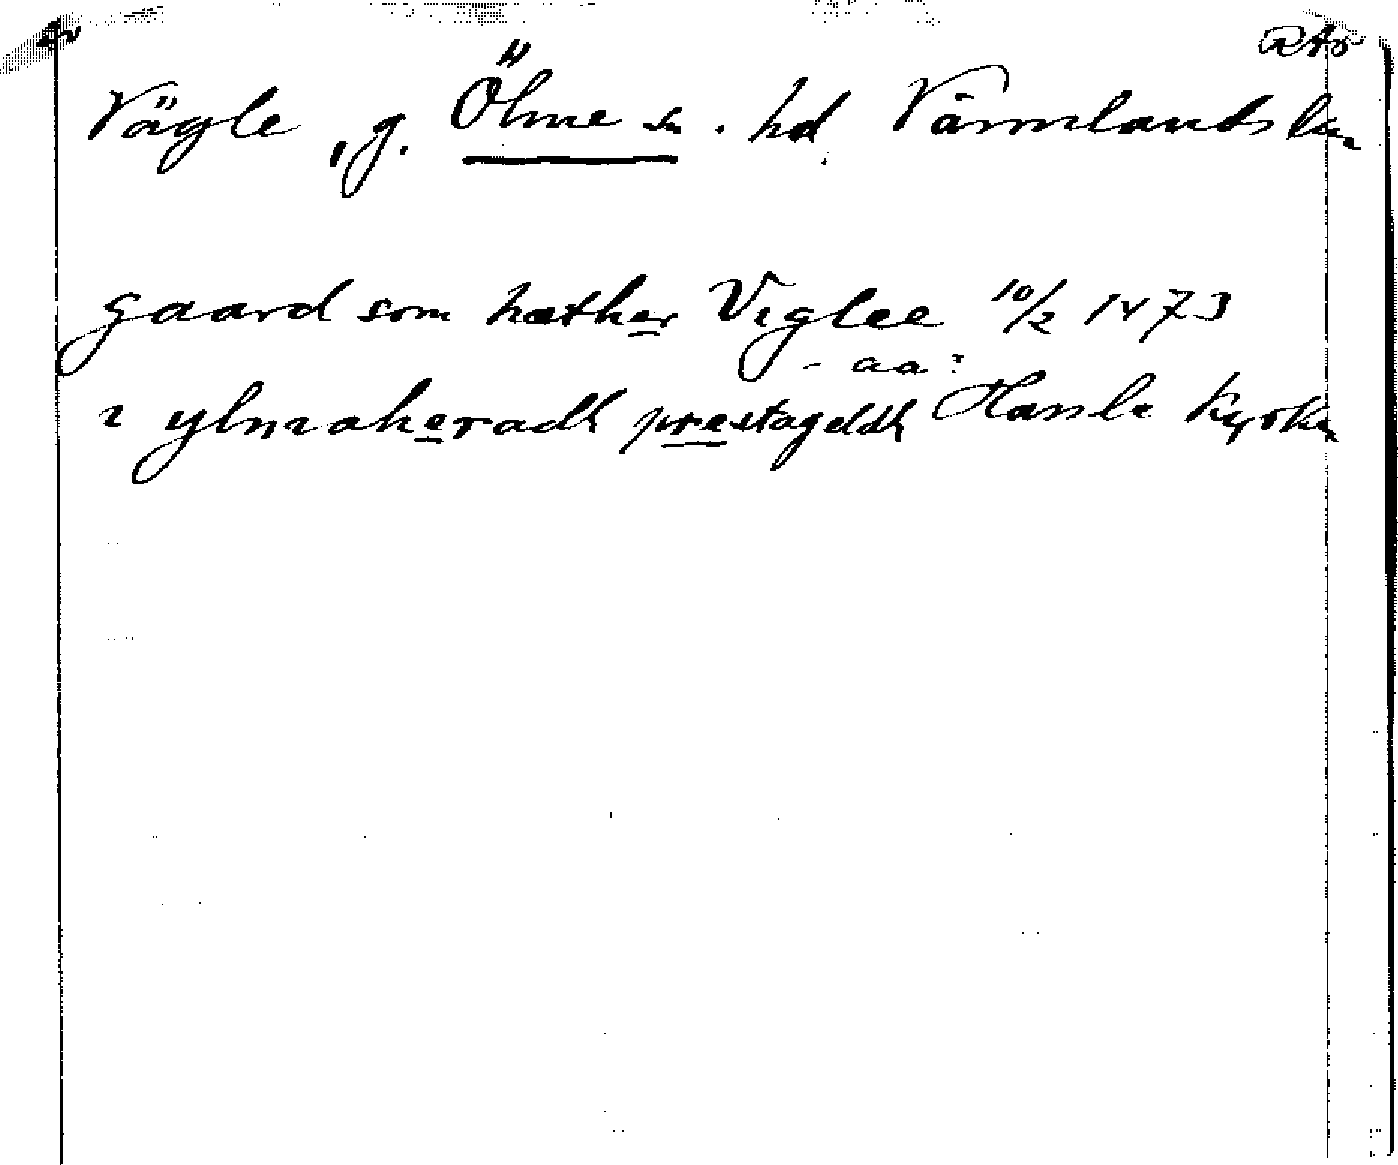 RAö
Vägle, g. Ölme sn. hd Värmlands län
gaard som hæther Viglee 10/2 1473
- aa?
i ylmaheradh prestageldh Hassle Kyrka